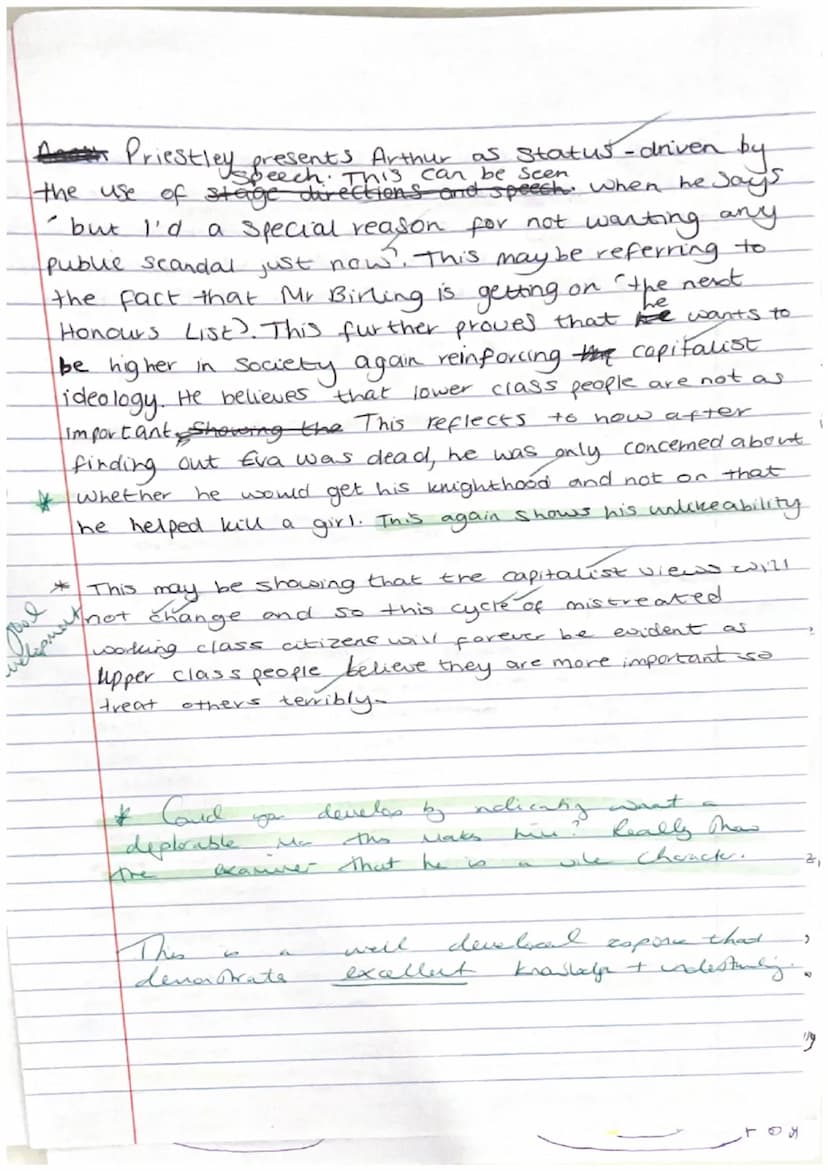 Priestley presents Arthur as status-driven by
speech. This can be seen
the use of stage directions and speech. when he says
"but I'd a special reason for not wanting any
public scandal just now". This may be referring to
the fact that Mr Birling is getting on "the next
Honours List". This further proves that he wants to
be higher in society again reinforcing the capitalist
ideology. He believes that lower class people are not as
important, showing the This reflects to how after
finding out Eva was dead, he was only concerned about
* whether he would get his knighthood and not on that
he helped kill a girl. This again shows his unlikeability
* This may be showing that the capitalist views will
good development
not change and so this cycle of mistreated
working class citizens will forever be evident as
upper class people believe they are more important so
treat others terribly.
* Could you develop by indicating what a
deplorable man this makes him? Really show
the examiner that he is a vile character.
This is a well developed response that
demonstrates excellent knowledge + understanding.